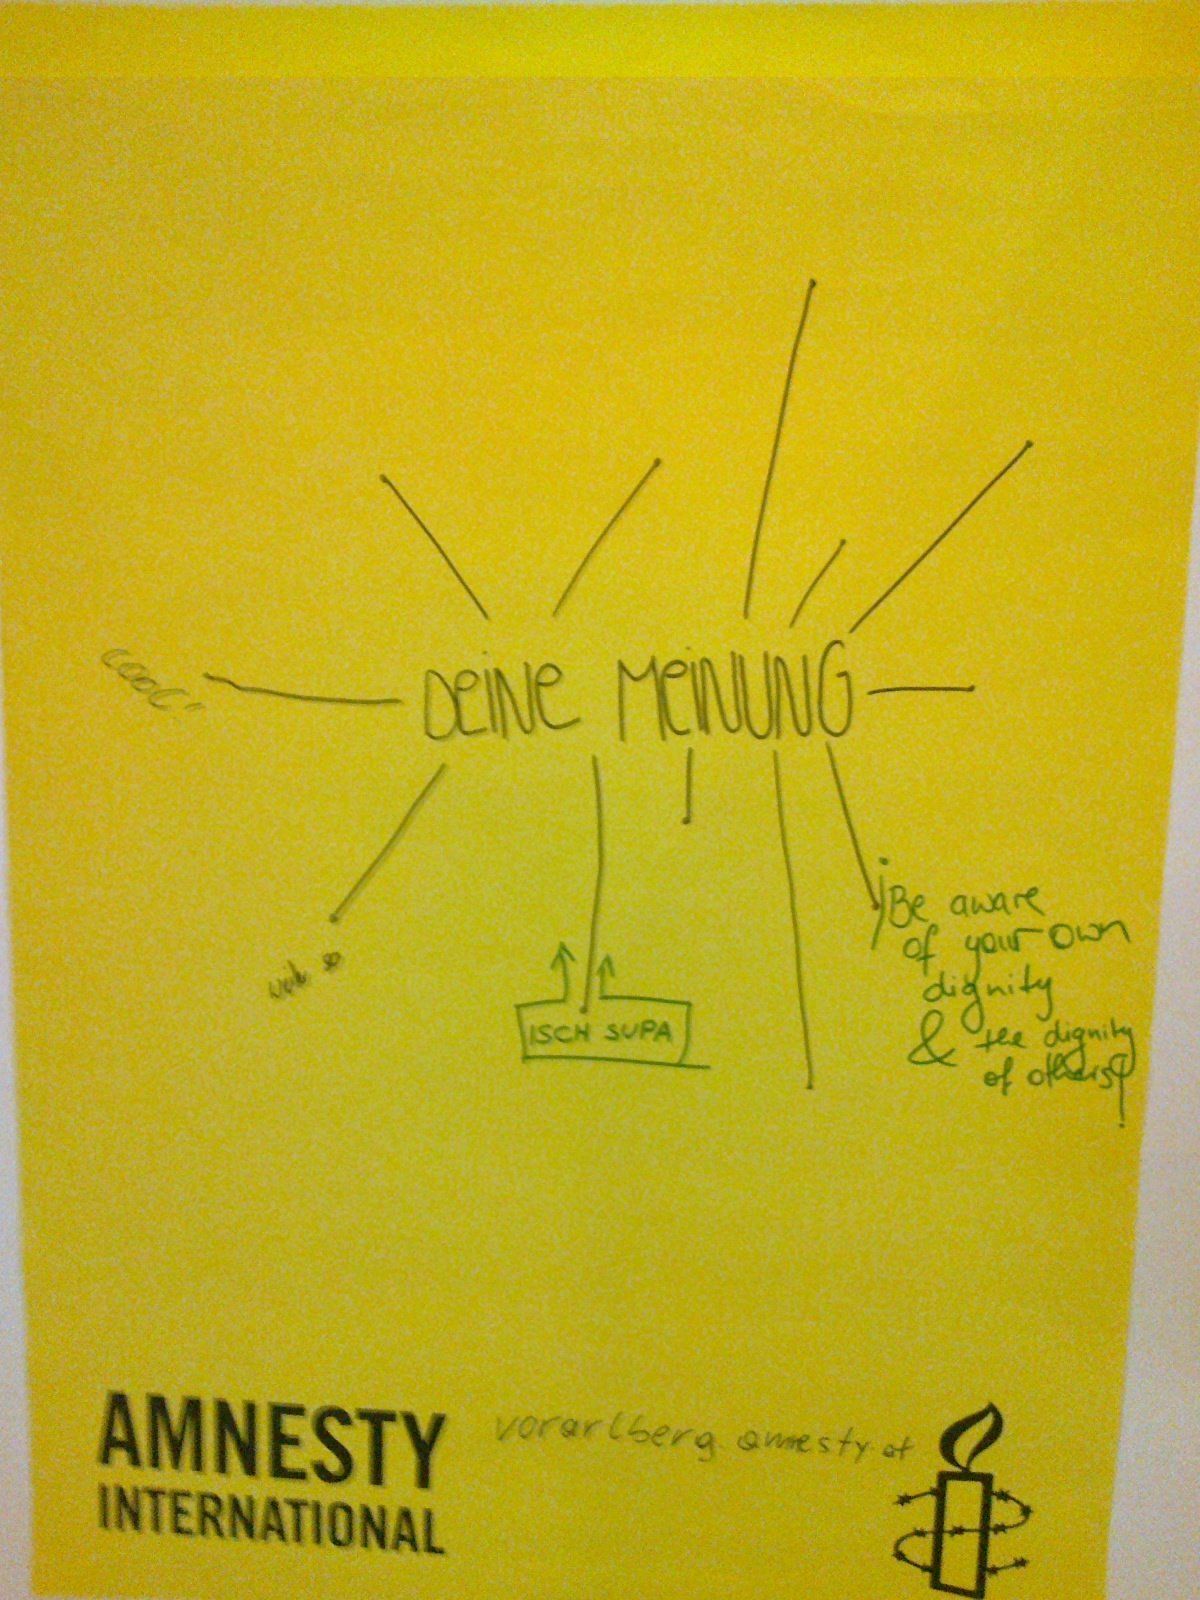 cool!
DEINE MEINUNG
ISCH SUPA
¡Be aware
of your own
dignity
& the dignity
of others!
AMNESTY
INTERNATIONAL
vorarlberg.amnesty.at